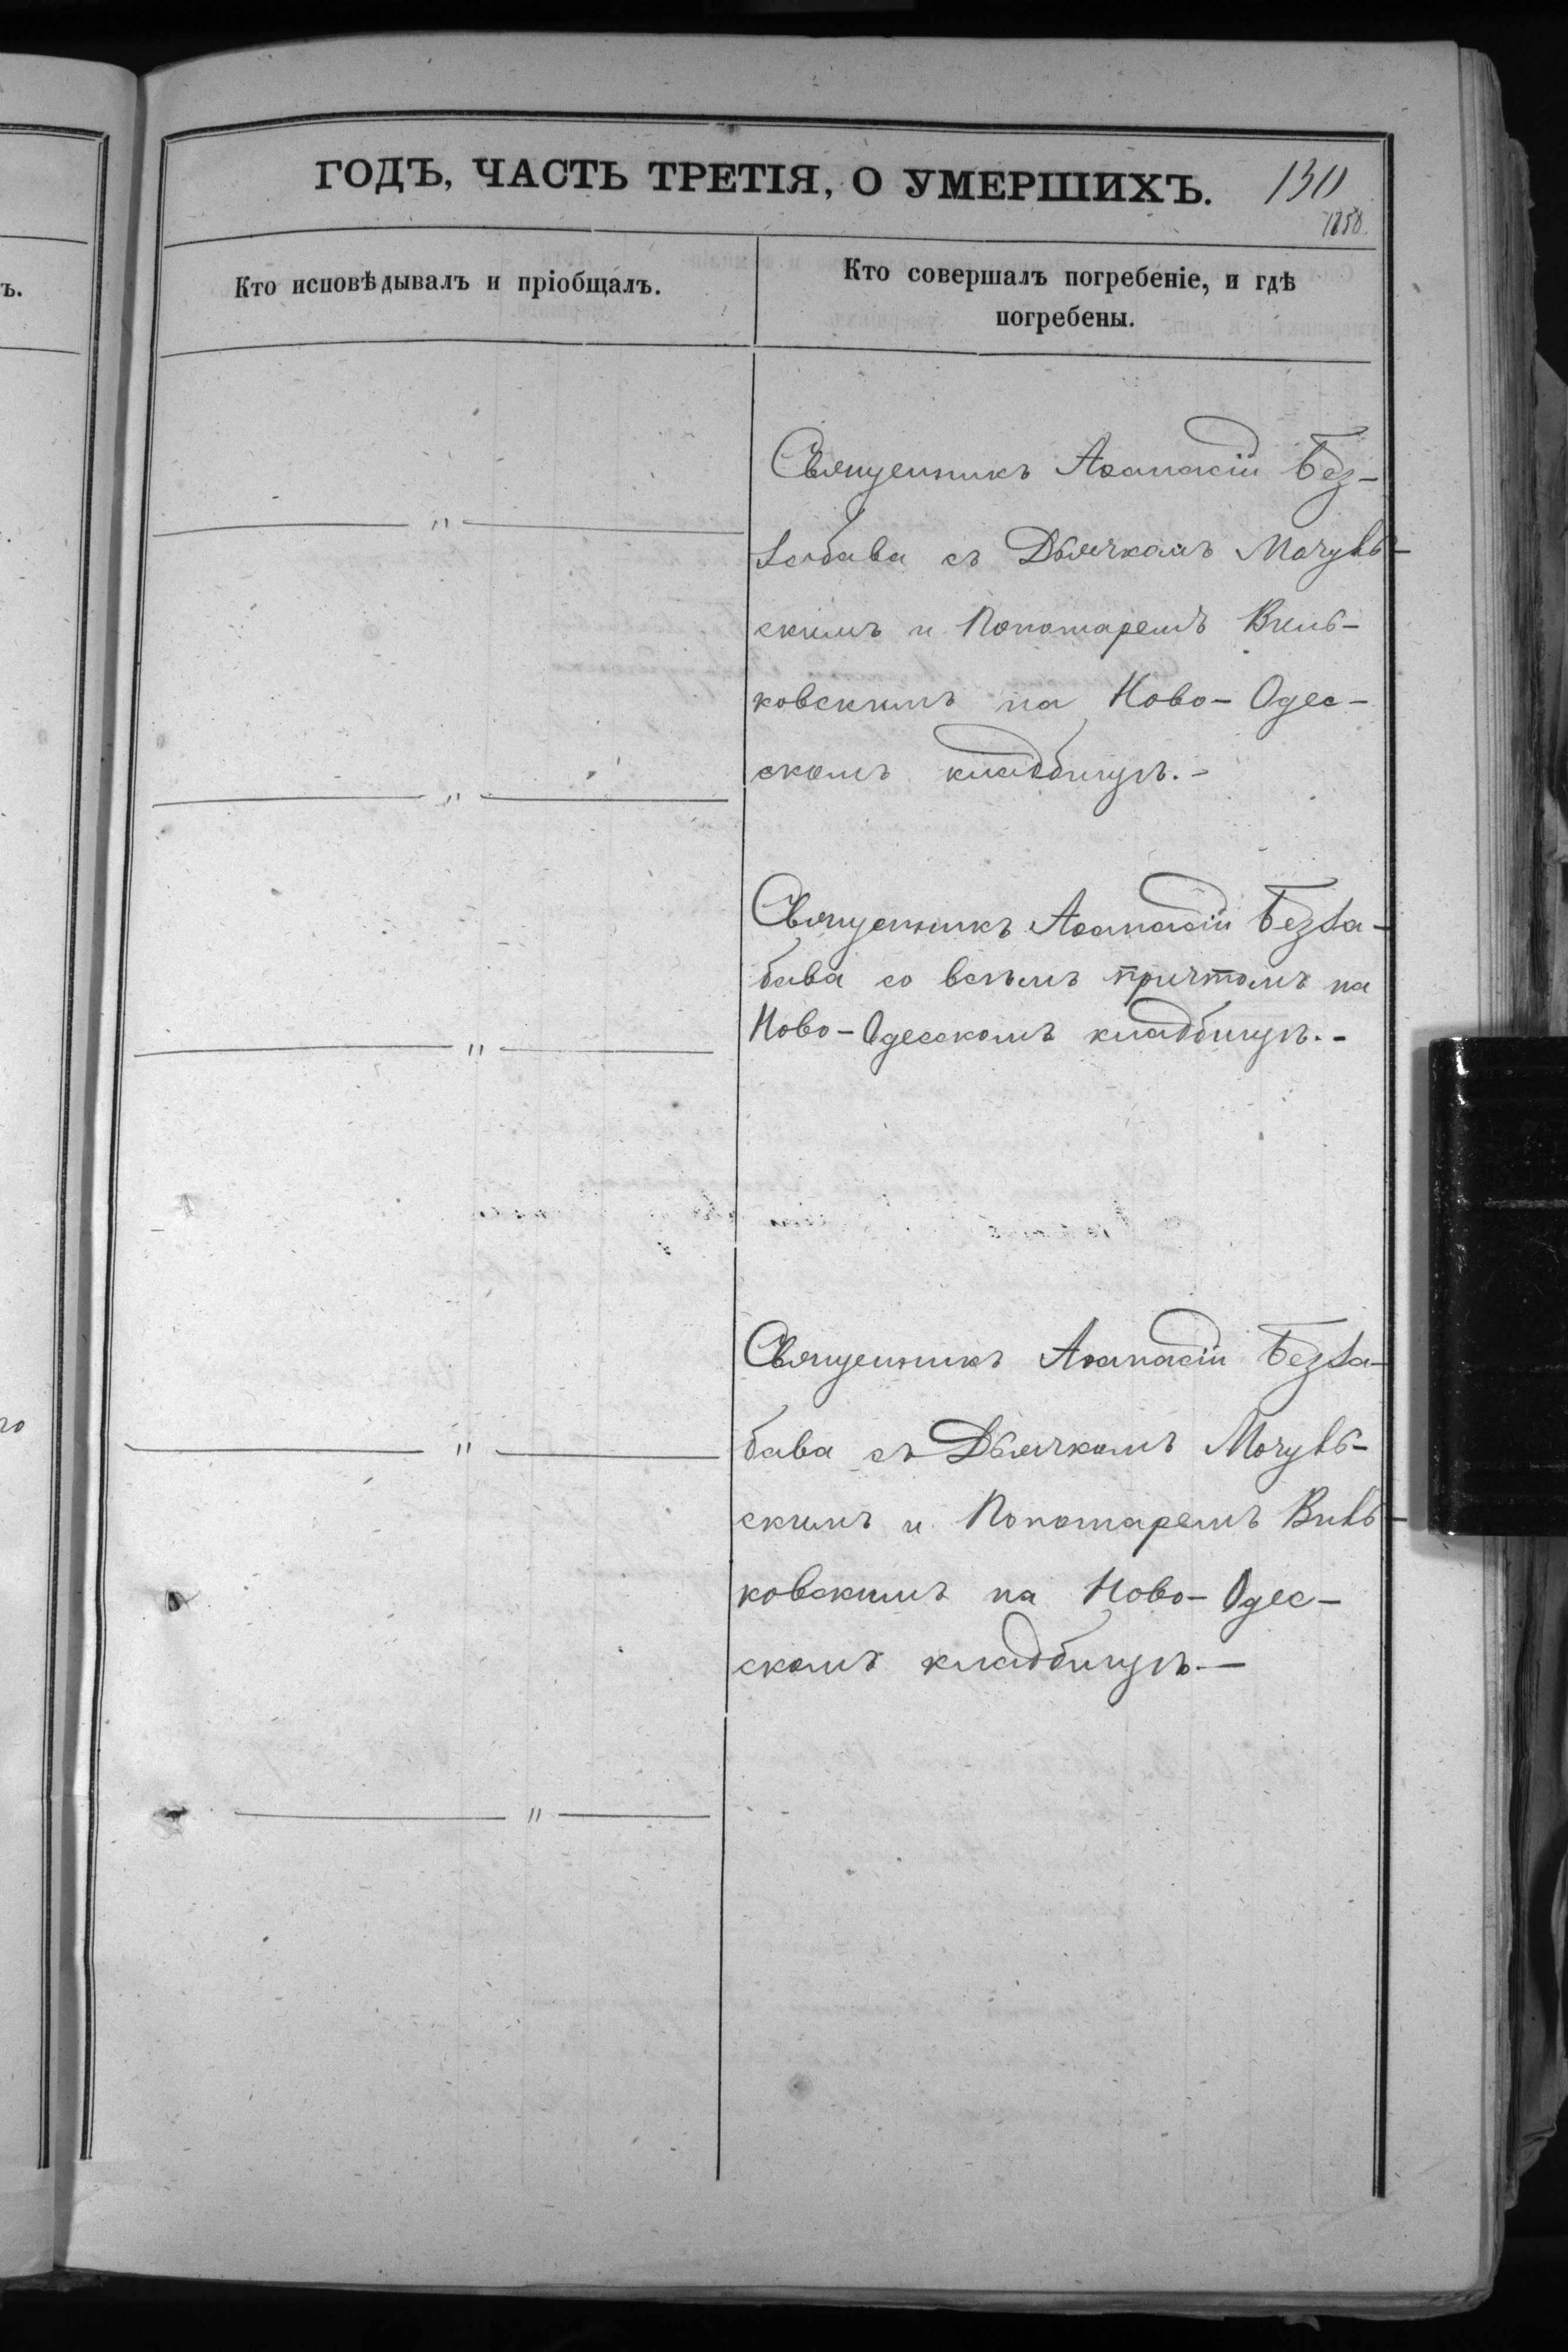 ГОДЪ, ЧАСТЬ ТРЕТІЯ, О УМЕРШИХЪ.
Кто исповѣдывалъ и пріобщалъ.
Кто совершалъ погребеніе, и гдѣ
погребены.
Священникъ Аѳанасій Без-
забава съ Дьячкомъ Мочуль-
скимъ и Пономаремъ Виль-
ковскимъ на Ново-Одес-
скомъ кладбищѣ.-
Священникъ Аѳанасій Безза-
бава со всѣмъ причтомъ на
Ново-Одесскомъ кладбищѣ.-
Священникъ Аѳанасій Безза-
бава съ Дьячкомъ Мочуль-
скимъ и Пономаремъ Виль-
ковскимъ на Ново-Одес-
скомъ кладбищѣ.—